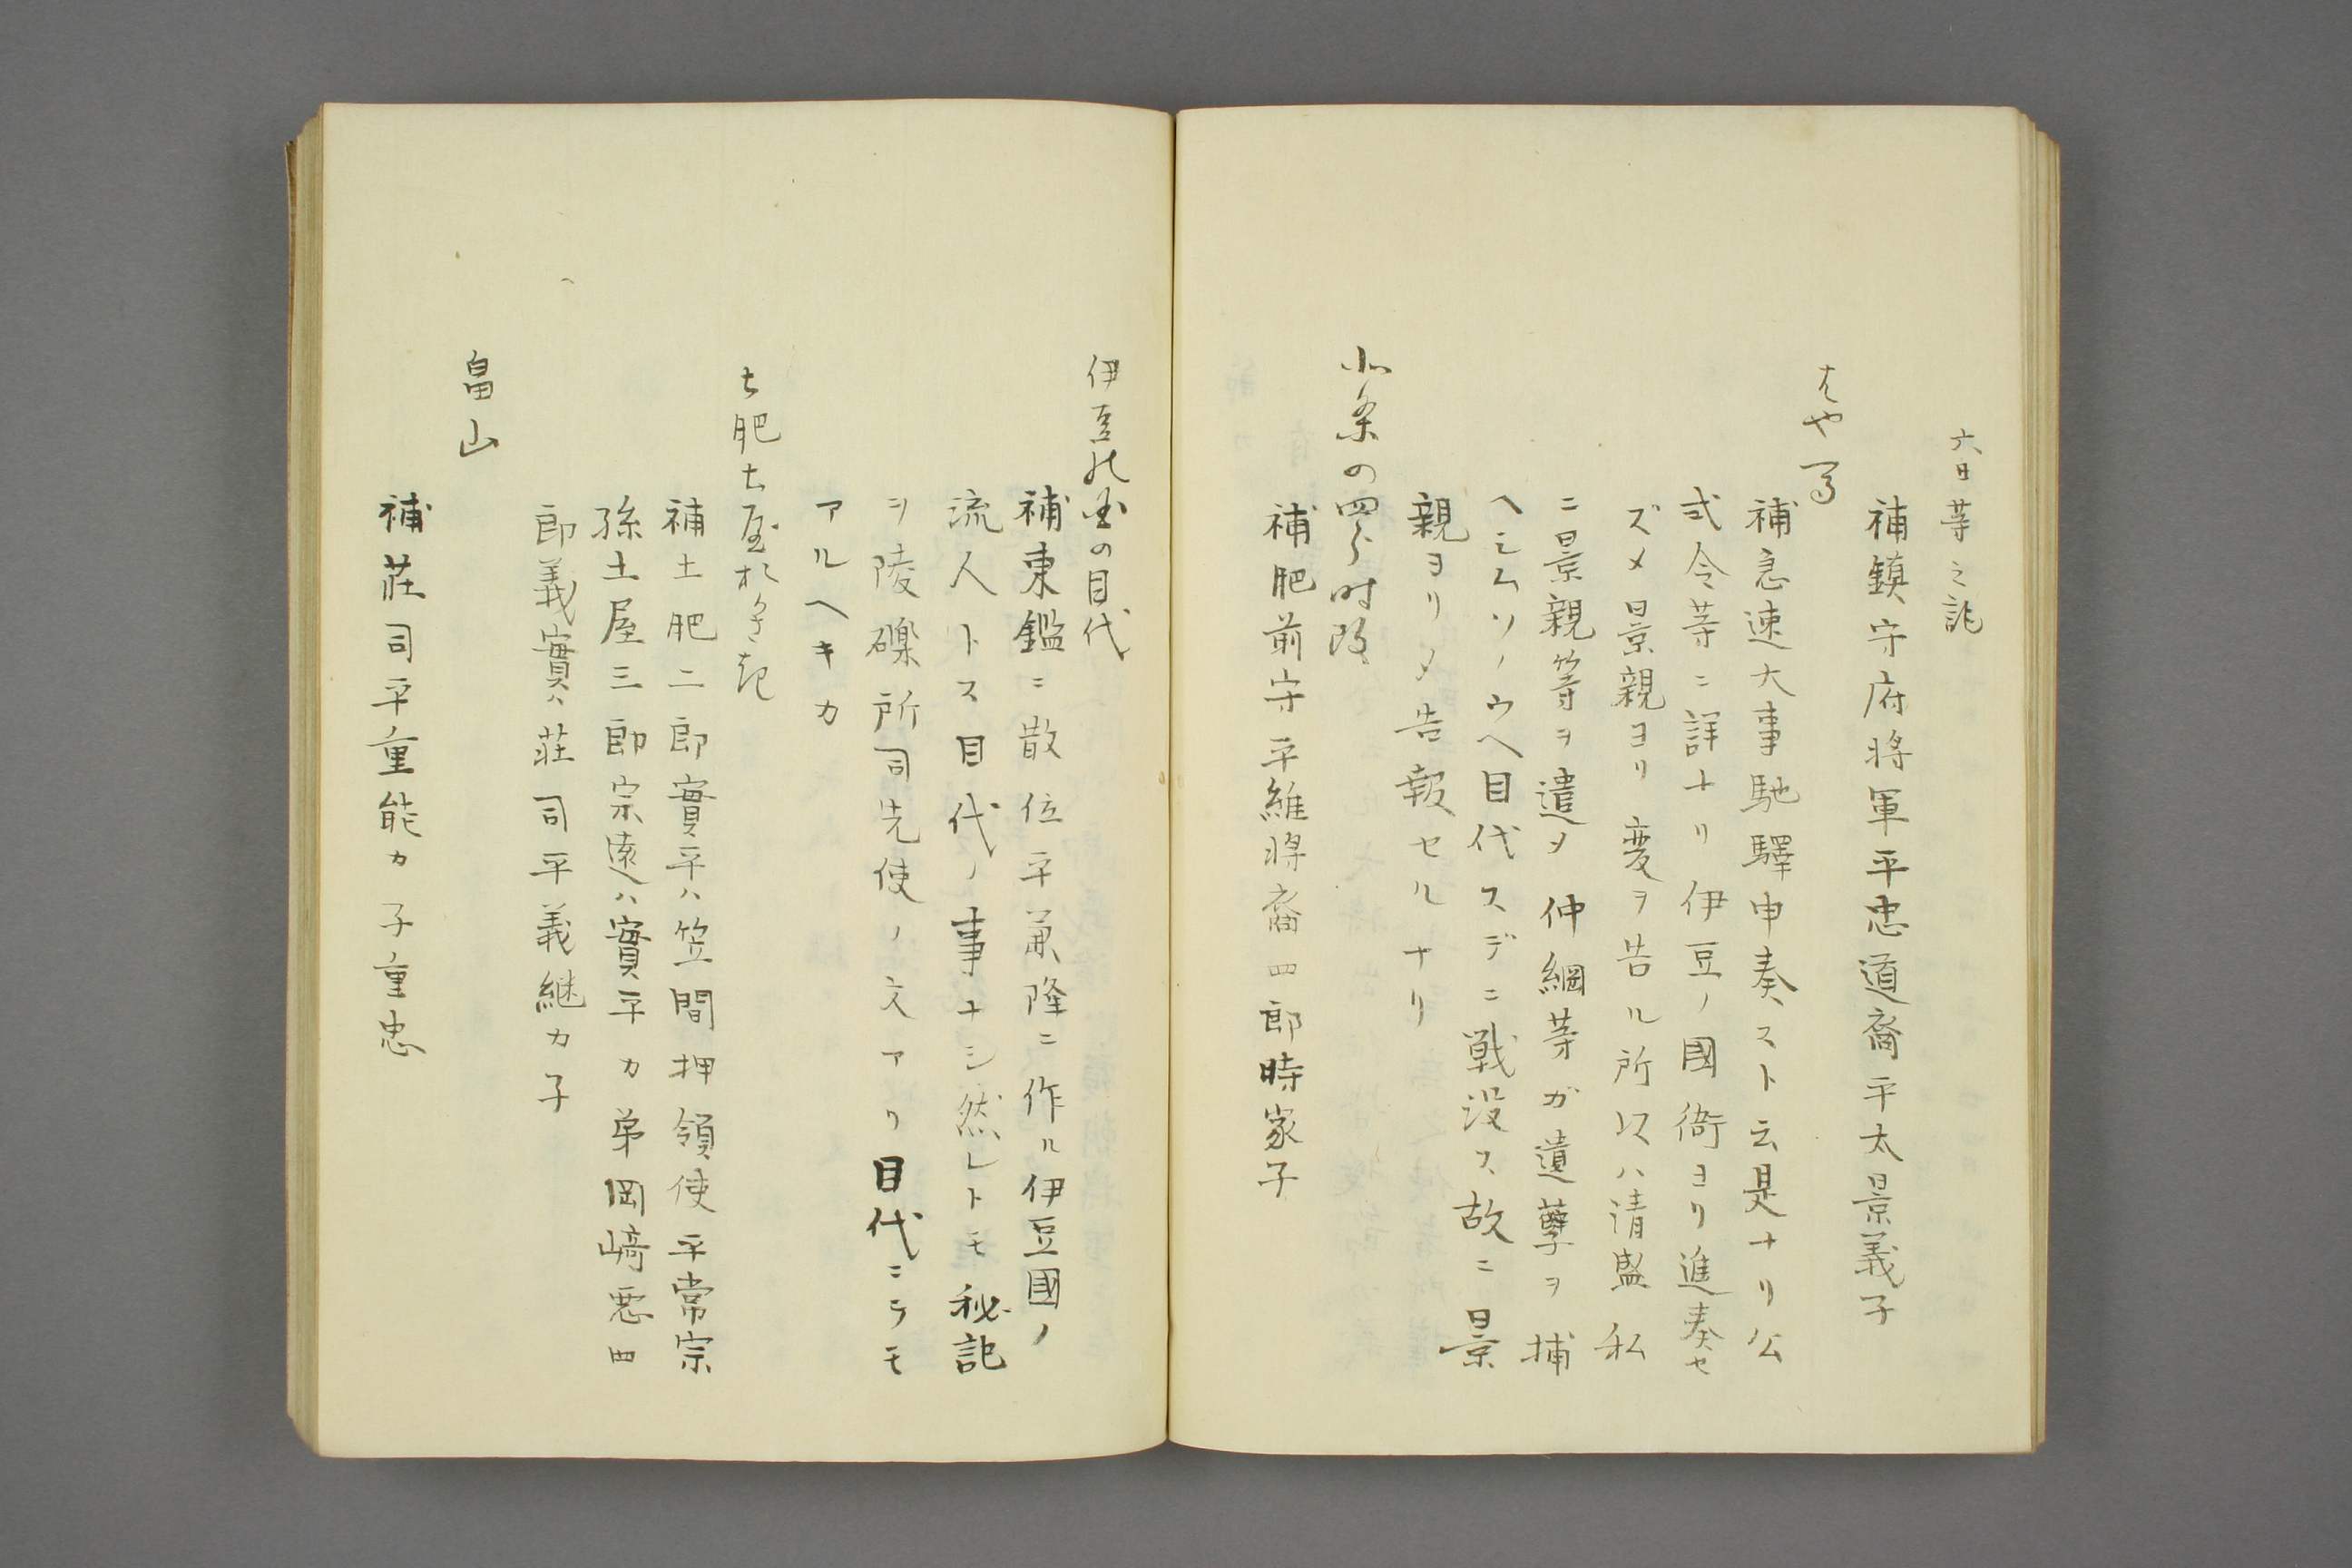 六日菩之訛
補鎮守府将軍平忠道裔平太景義子
はや馬
補急速大事馳驛申奏スト云是ナリ公
式令等ニ詳ナリ伊豆ノ國衙ヨリ進奏セ
ズメ景親ヨリ変ヲ告ル所以ハ清盛私
ニ景親等ヲ遣メ仲綱等ガ遺孽ヲ捕
ヘシムソノウヘ目代スデニ戦没ス故ニ景
親ヨリメ告報セルナリ
北条の四らう時政
補肥前守平維将裔四郎時家子
伊豆の国の目代
補東鑑ニ散位平兼隆ニ作ル伊豆國ノ
流人トス目代ノ事ナシ然レトモ秘記
ヲ陵礫所司先使ノ文アリ目代ニテモ
アルヘキカ
土肥土屋
補土肥二郎實平ハ笠間押領使平常宗
孫土屋三郎宗遠ハ實平カ弟岡﨑悪四
郎義實ハ荘司平義継カ子
畠山
補荘司平重能カ子重忠